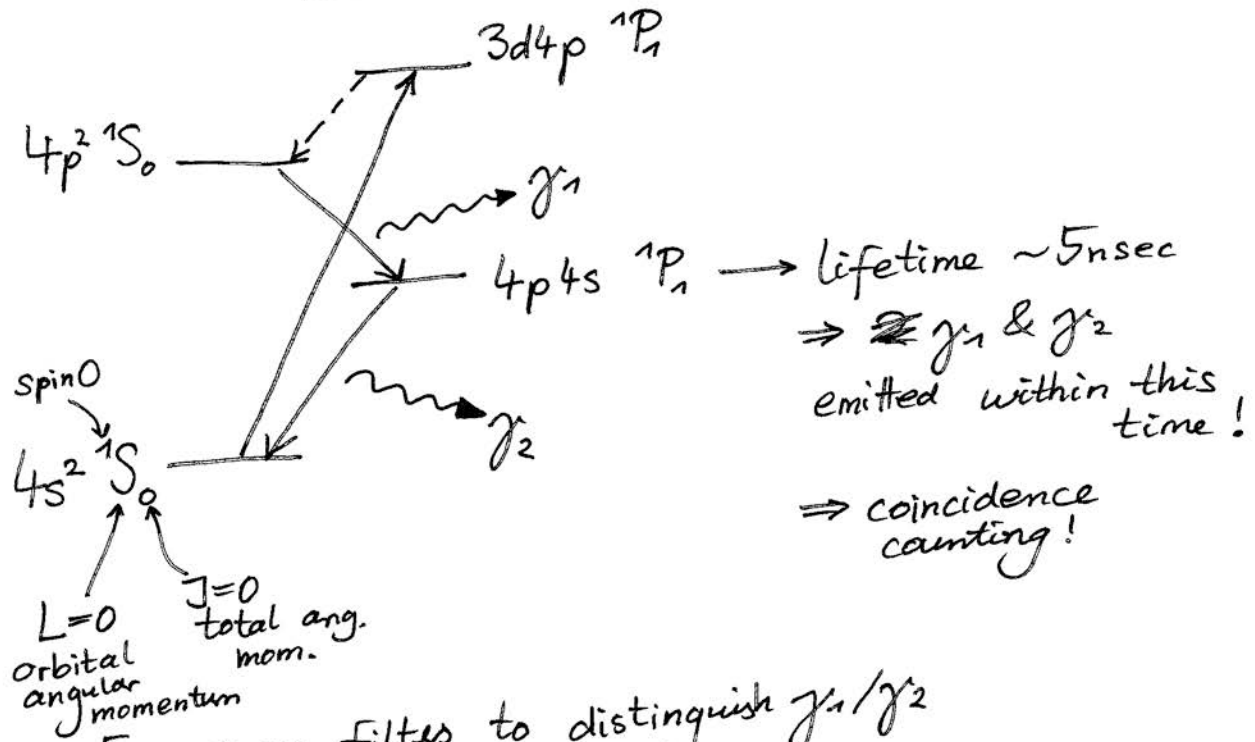 3d4p ¹P₁
4p² ¹S₀
γ₁
4p4s ¹P₁ → lifetime ~5nsec
⇒ γ₁ & γ₂
emitted within this
time!
γ₂
spin0
4s² ¹S₀
⇒ coincidence
counting!
L=0
orbital
angular
momentum
J=0
total ang.
mom.
to distinguish γ₁/γ₂